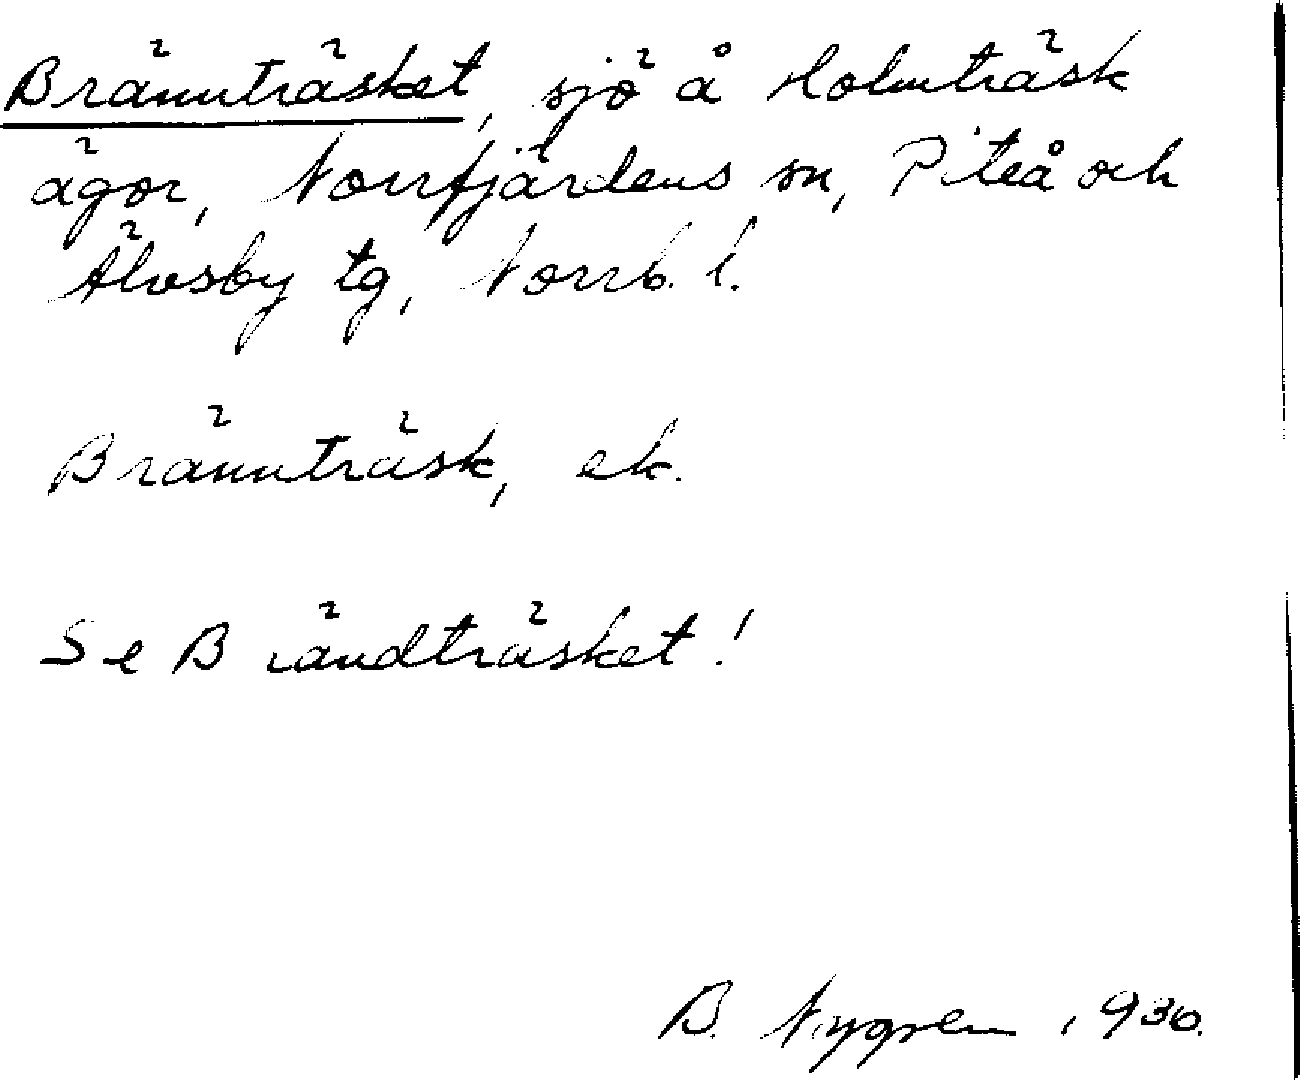 Brännträsket, sjö å Holmträsk
ägor, Norrfjärdens sn, Piteå och
Älvsby tg, Norrb. l.
Brännträsk, ek.
Se Brändträsket!
B. Nygren 1930.